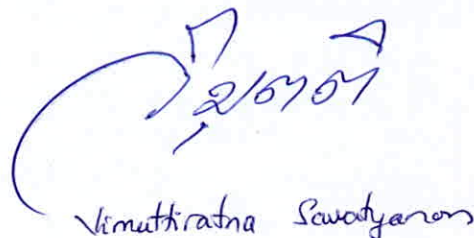 วิมุตติ
Vimuttiratna Sawatyanon